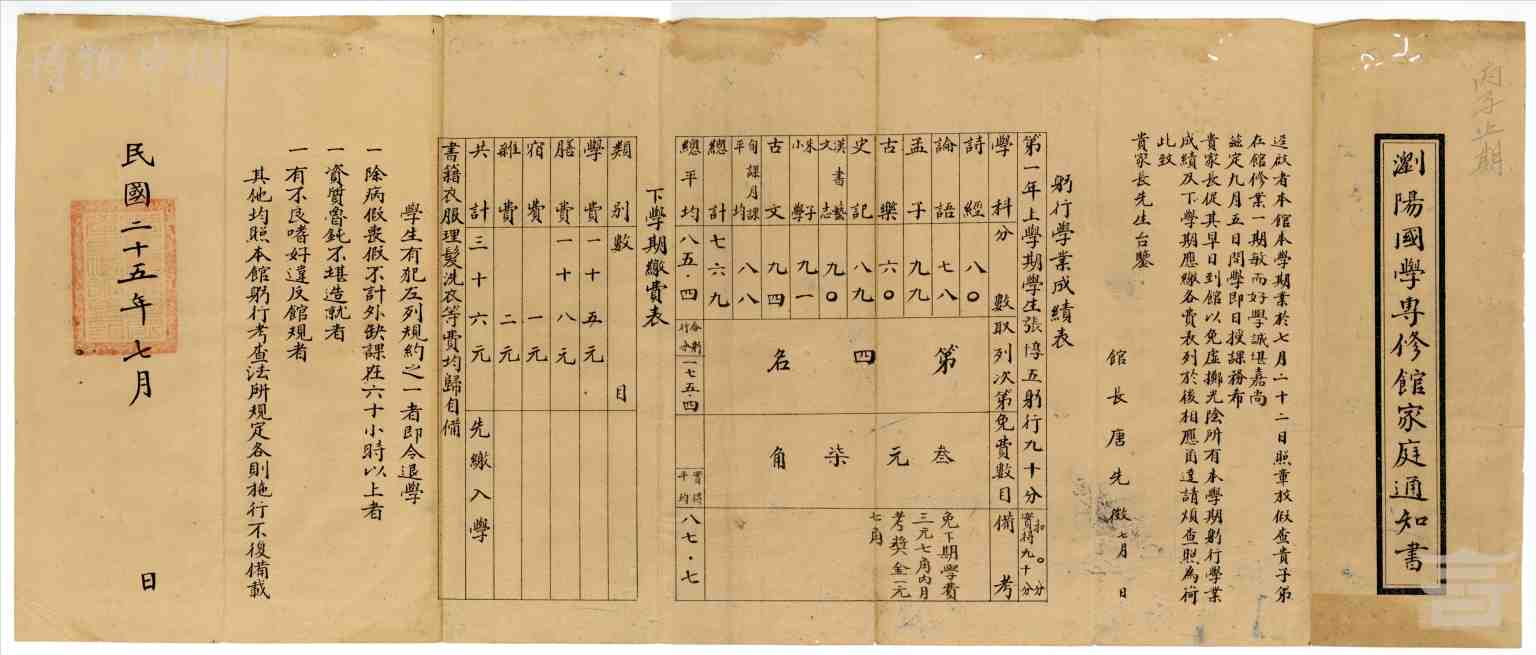 丙子上期
瀏陽國學專修館家庭通知書
逕啟者本館本學期業於七月二十二日照章放假查貴子弟
在館修業一期敏而好學誠堪嘉尚
茲定九月五日開學即日授課務希
貴家長促其早日到館以免虛擲光陰所有本學期躬行學業
成績及下學期應繳各費表列於後相應函達請煩查照為荷
此致
貴家長先生台鑒
館長唐先徵 七月 日
躬行學業成績表
第一年上學期學生張惇五躬行九十分 扣〇分 實得九十分
學科 分數 取列次第 免費數目 備考
詩經 八〇
論語 七八
孟子 九九
古樂 六〇
史記 八九
漢書藝文志 九〇
朱子小學 九一
古文 九四
旬課月課平均 八八
總計 七六九
總平均 八五·四
第四名
合躬行分 一七五·四
叁元柒角
實得平均 八七·七
免下期學費
三元七角內月
考獎金一元
七角
下學期繳費表
類別 數目
學費 一十五元
膳費 一十八元
宿費 一元
雜費 二元
共計 三十六元 先繳入學
書籍衣服理髮洗衣等費均歸自備
學生有犯左列規約之一者即令退學
一 除病假喪假不計外缺課在六十小時以上者
一 資質魯鈍不堪造就者
一 有不良嗜好違反館規者
其他均照本館躬行考查法所規定各則施行不復備載
民國二十五年七月 日